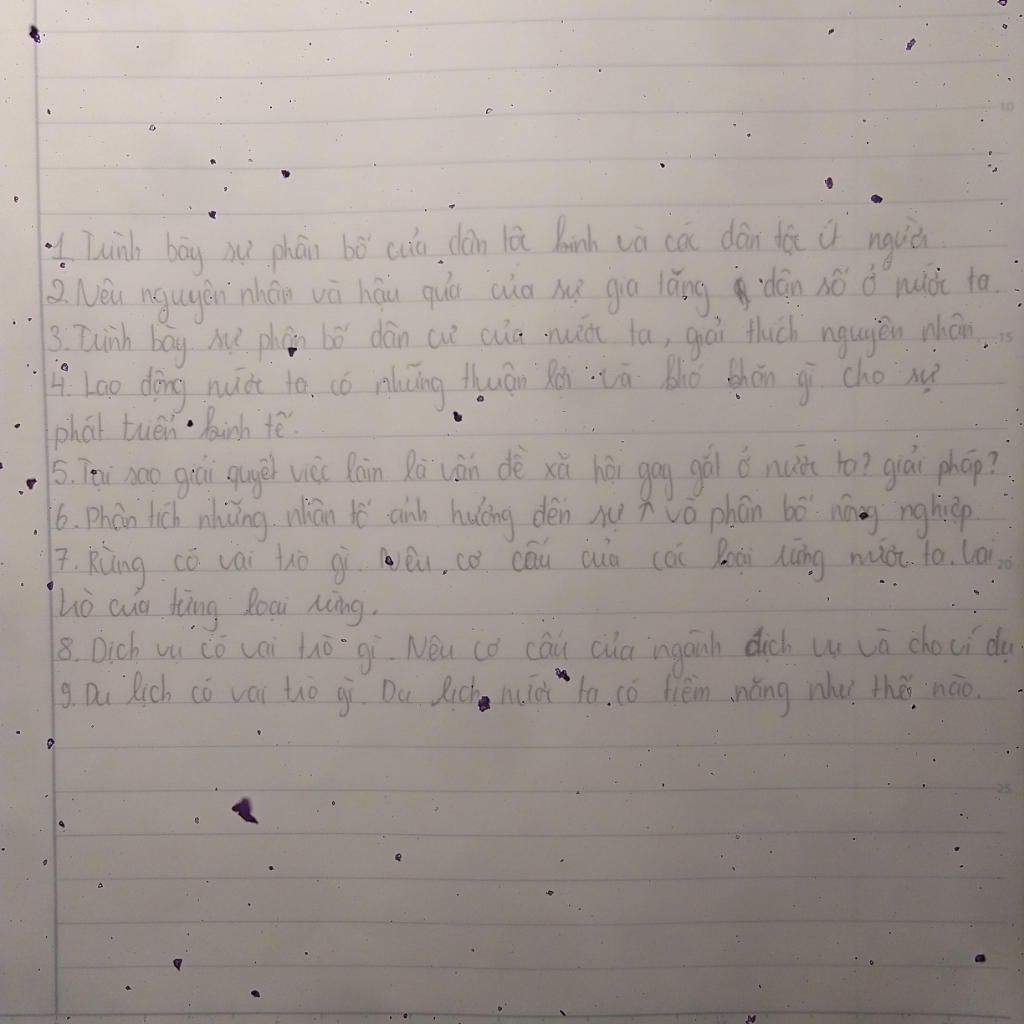 1. Trình bày sự phân bố của dân tộc kinh và các dân tộc ít người.
2. Nêu nguyên nhân và hậu quả của sự gia tăng dân số ở nước ta.
3. Trình bày sự phân bố dân cư của nước ta, giải thích nguyên nhân.
4. Lao động nước ta có những thuận lợi và khó khăn gì cho sự
phát triển kinh tế.
5. Tại sao giải quyết việc làm là vấn đề xã hội gay gắt ở nước ta? giải pháp?
6. Phân tích những nhân tố ảnh hưởng đến sự ↑ và phân bố nông nghiệp
7. Rừng có vai trò gì. Nêu cơ cấu của các loại rừng nước ta. Vai
trò của từng loại rừng.
8. Dịch vụ có vai trò gì. Nêu cơ cấu của ngành dịch vụ và cho ví dụ
9. Du lịch có vai trò gì. Du lịch nước ta có tiềm năng như thế nào.
10
15
20
25